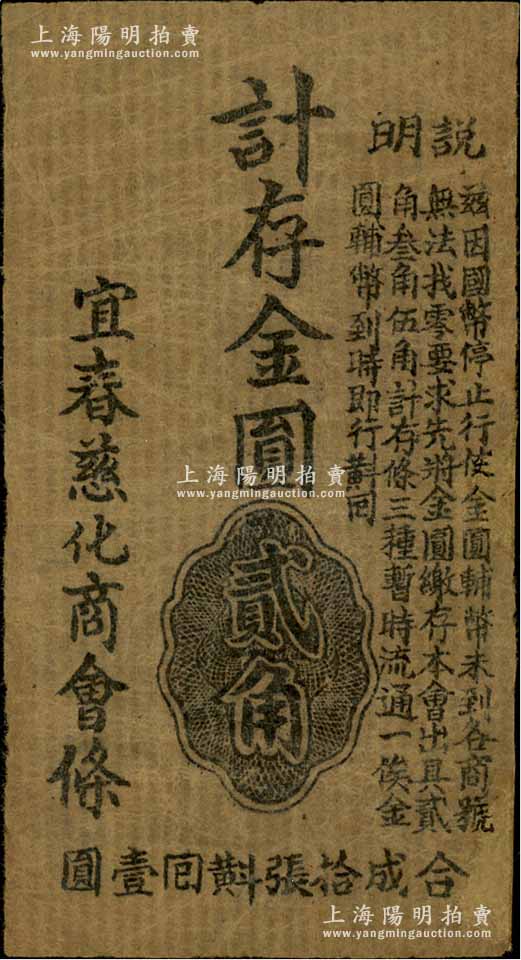 上海陽明拍賣
www.yangmingauction.com
上海陽明拍賣
www.yangmingauction.com
説明
兹因國幣停止行使金圓輔幣未到各商號
無法找零要求先將金圓繳存本會出具貳
角叁角伍角計存條三種暫時流通一俟金
圓輔幣到時即行斢回
計存金圓
貳角
宜春慈化商會條
合成拾張斢回壹圓
上海陽明拍賣
www.yangmingauction.com
上海陽明拍賣
www.yangmingauction.com